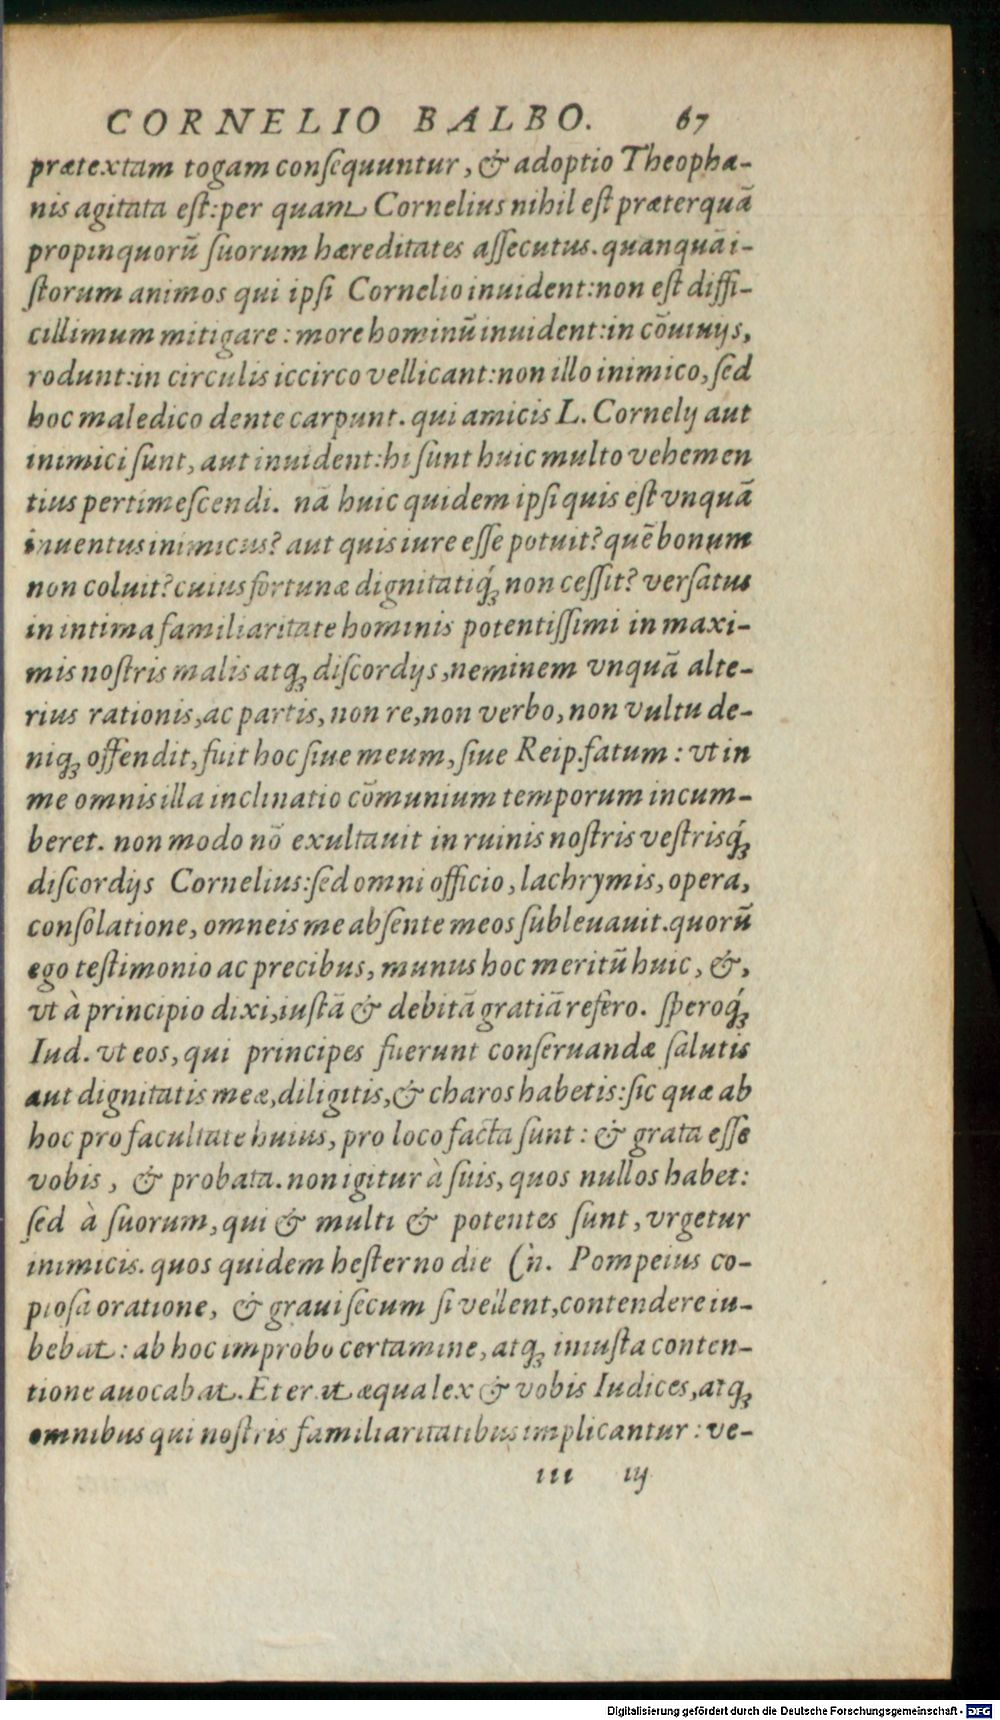 CORNELIO BALBO. 67
prætextam togam conſequuntur, & adoptio Theopha-
nis agitata eſt: per quam Cornelius nihil eſt præterquā
propinquorū ſuorum hæreditates aſſecutus. quanquā i-
ſtorum animos qui ipſi Cornelio inuident: non eſt diffi-
cillimum mitigare: more hominū inuident: in cōuiuijs,
rodunt: in circulis iccirco vellicant: non illo inimico, ſed
hoc maledico dente carpunt. qui amicis L. Cornelij aut
inimici ſunt, aut inuident: hi ſunt huic multo vehemen
tius pertimeſcendi. nā huic quidem ipſi quis eſt vnquā
inuentus inimicus? aut quis iure eſſe potuit? quē bonum
non coluit? cuius fortunæ dignitatiq́; non ceſſit? verſatus
in intima familiaritate hominis potentiſſimi in maxi-
mis noſtris malis atq; diſcordijs, neminem vnquā alte-
rius rationis, ac partis, non re, non verbo, non vultu de-
niq; offendit, fuit hoc ſiue meum, ſiue Reip. fatum: vt in
me omnis illa inclinatio cōmunium temporum incum-
beret. non modo nō exultauit in ruinis noſtris veſtrisq́;
diſcordijs Cornelius: ſed omni officio, lachrymis, opera,
conſolatione, omneis me abſente meos ſubleuauit. quorū
ego teſtimonio ac precibus, munus hoc meritū huic, &,
vt à principio dixi, iuſtā & debitā gratiā refero. ſperoq́;
Iud. vt eos, qui principes fuerunt conſeruandæ ſalutis
aut dignitatis meæ, diligitis, & charos habetis: ſic quæ ab
hoc pro facultate huius, pro loco facta ſunt: & grata eſſe
vobis, & probata. non igitur à ſuis, quos nullos habet:
ſed à ſuorum, qui & multi & potentes ſunt, vrgetur
inimicis. quos quidem heſterno die Cn̄. Pompeius co-
pioſa oratione, & graui ſecum ſi vellent, contendere iu-
bebat: ab hoc improbo certamine, atq; iniuſta conten-
tione auocabat. Et erat æqua lex & vobis Iudices, atq;
omnibus qui noſtris familiaritatibus implicantur: ve-
iii iij
Digitalisierung gefördert durch die Deutsche Forschungsgemeinschaft - DFG